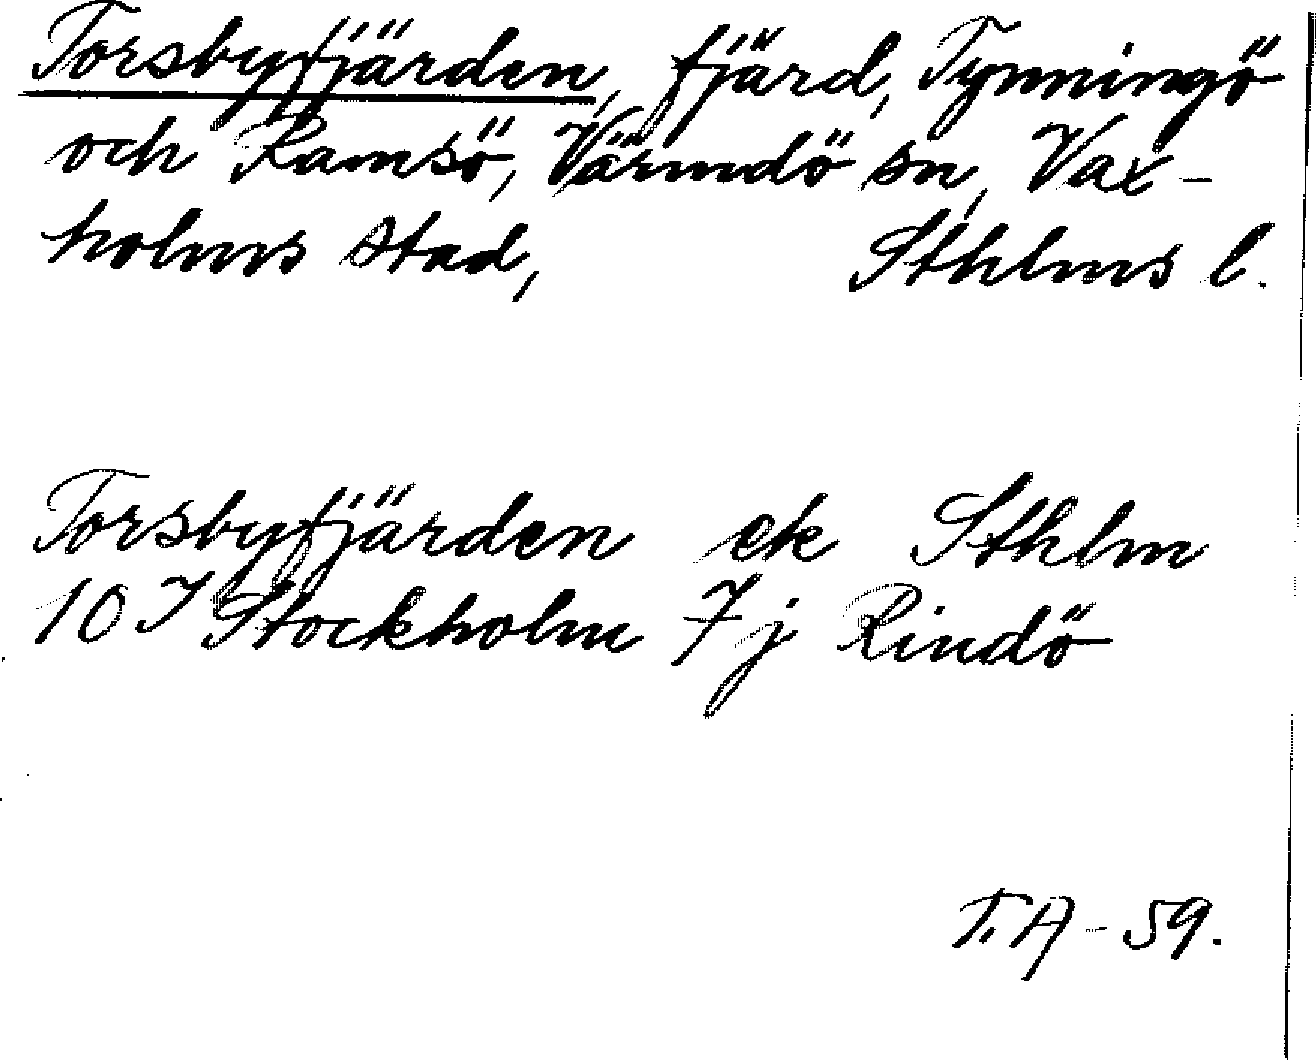 Torsbyfjärden, fjärd, Tynningö
och Ramsö, Värmdö sn, Vax-
holms stad, Sthlms l.
Torsbyfjärden ek Sthlm
10 I Stockholm 7 j Rindö
T.A - 59.